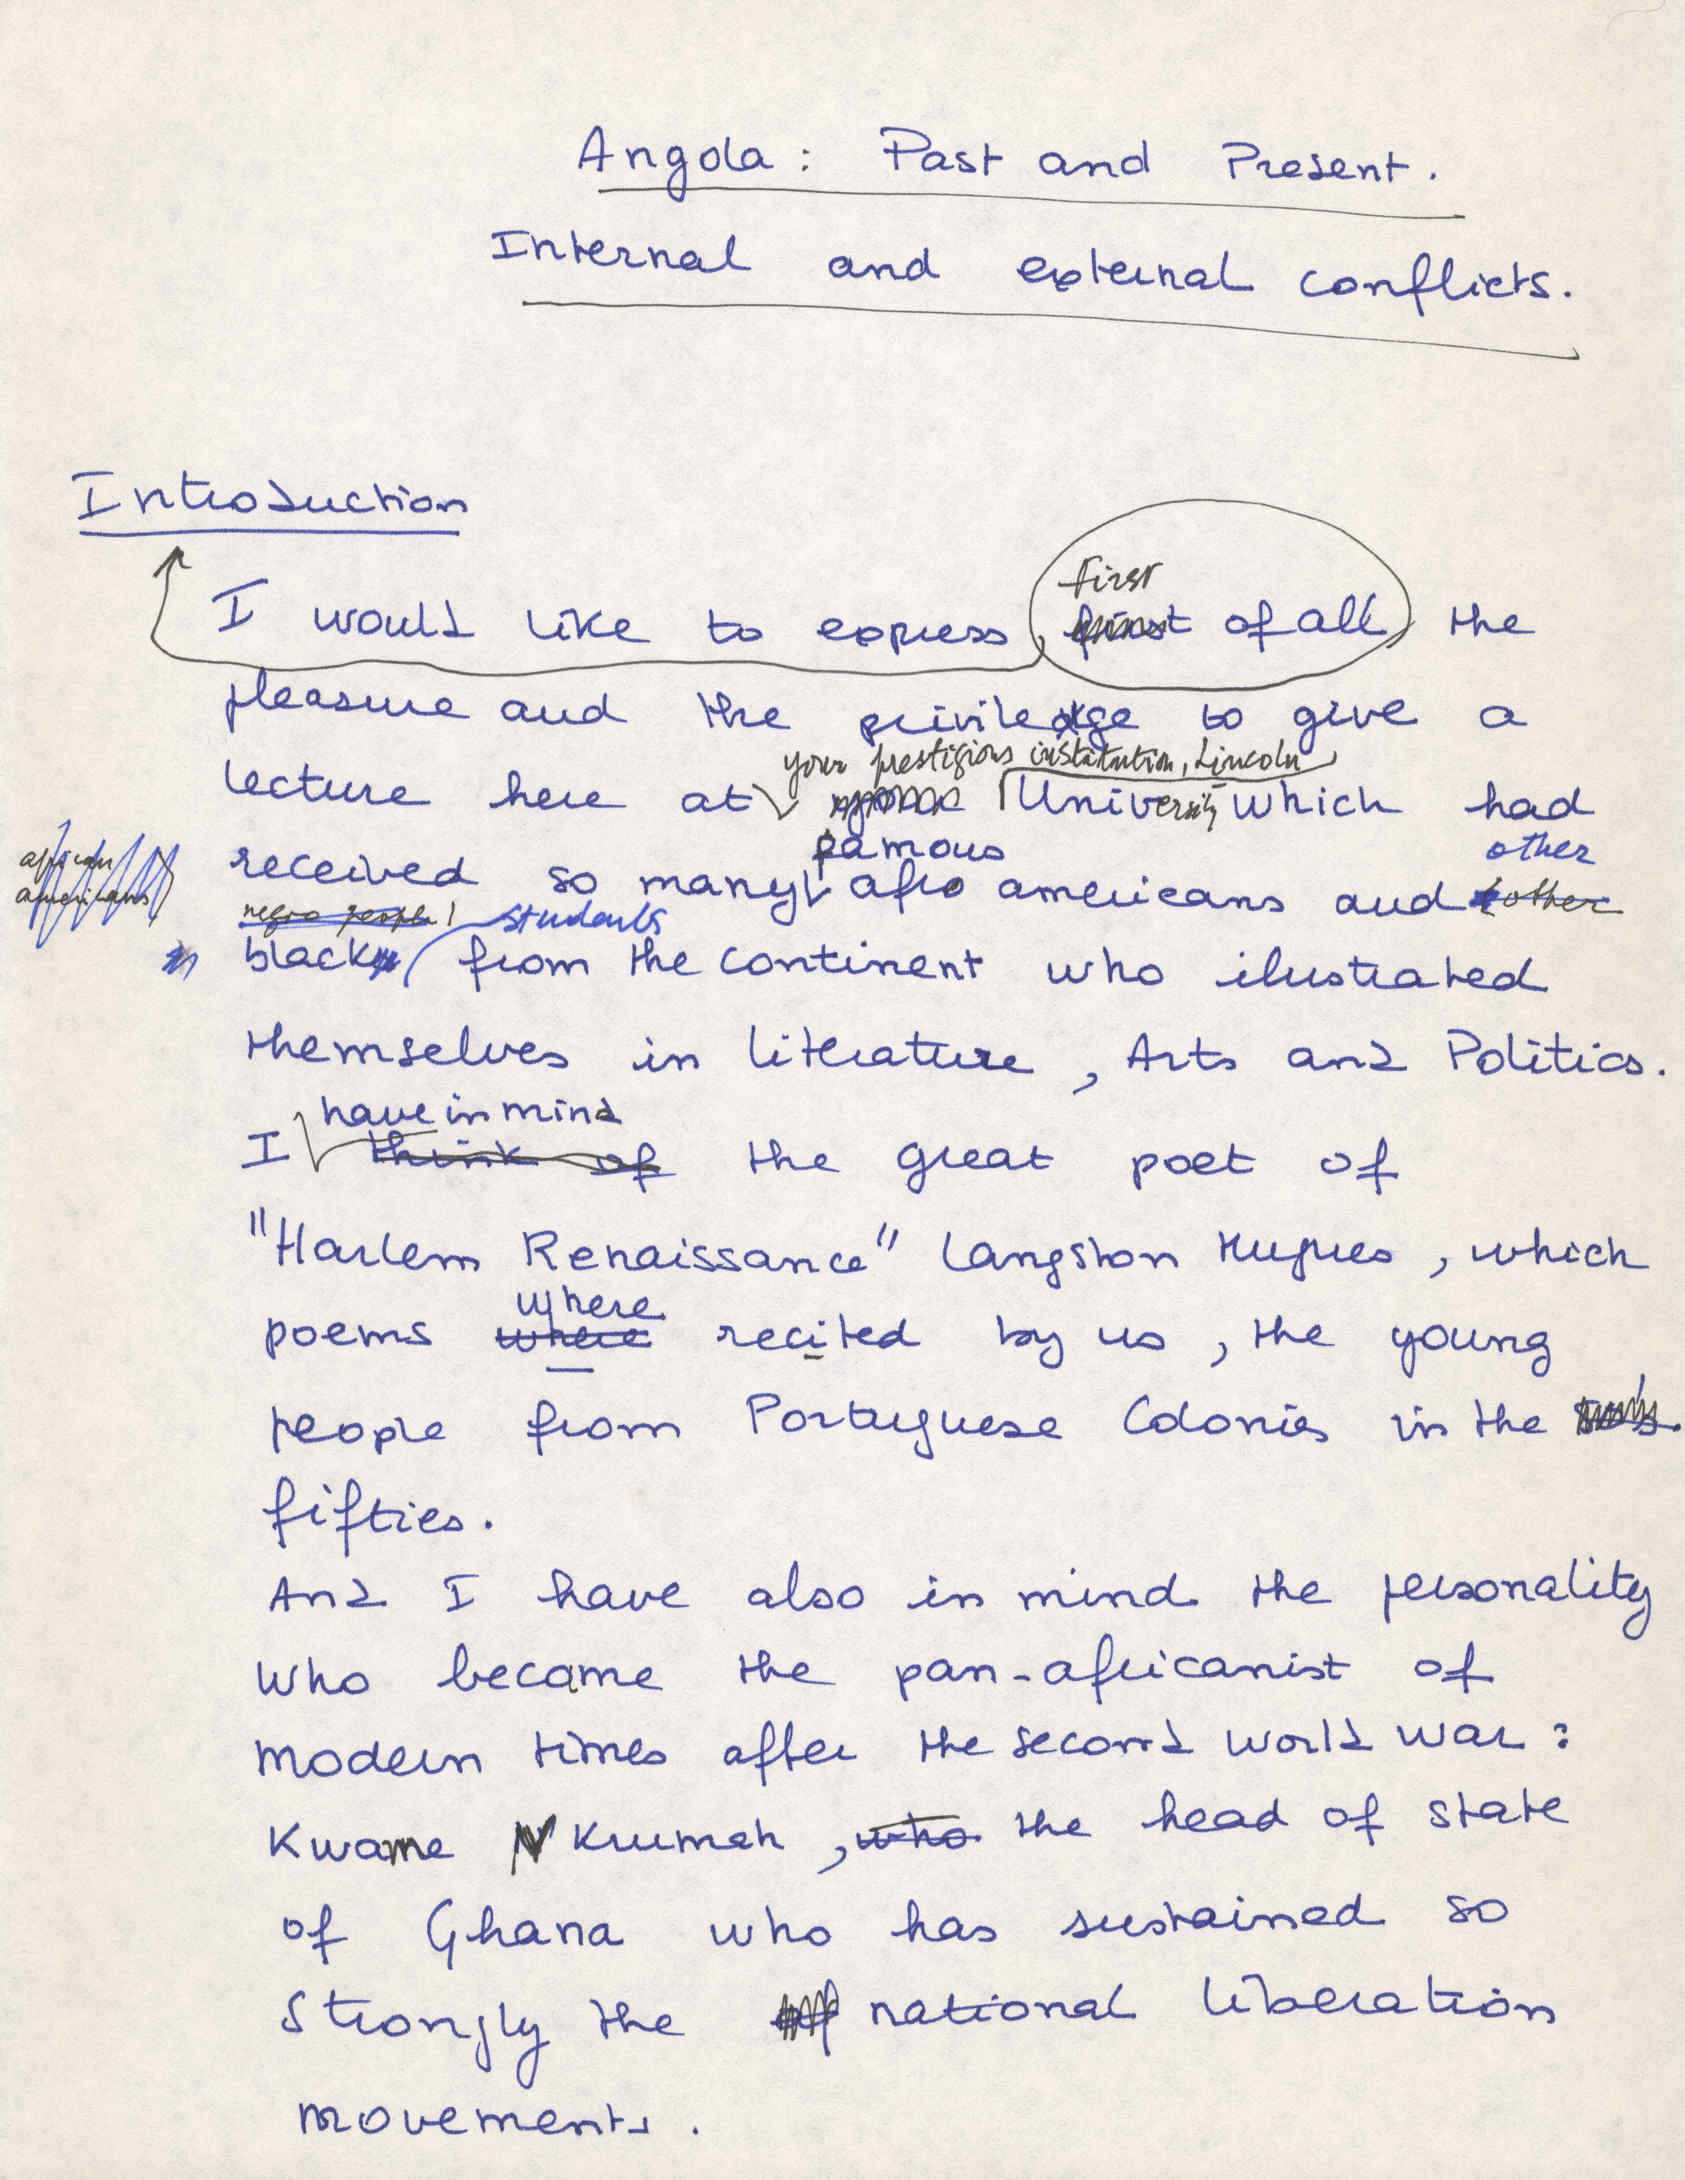 Angola : Past and Present.
Internal and external conflicts.
Introduction
first
I would like to express, first of all, the
pleasure and the privilege to give a
your prestigious institution, Lincoln
lecture here at University which had
famous other
received so many afro americans and other
african
americans
negro people students
black from the continent who ilustrated
themselves in literature, Arts and Politics.
have in mind
I think of the great poet of
"Harlem Renaissance" Langston Hugues, which
where
poems where recited by us, the young
people from Portuguese Colonies in the
fifties.
And I have also in mind the personality
who became the pan-africanist of
modern times after the second world war:
Kwame NKrumah, who the head of state
of Ghana who has sustained so
strongly the national liberation
movements.